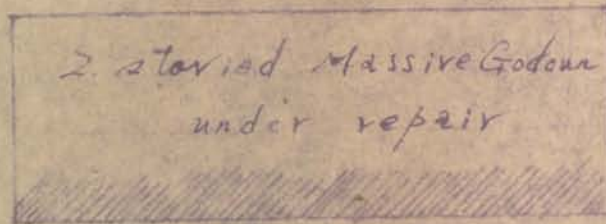 2. storied Massive Godoun
under repair